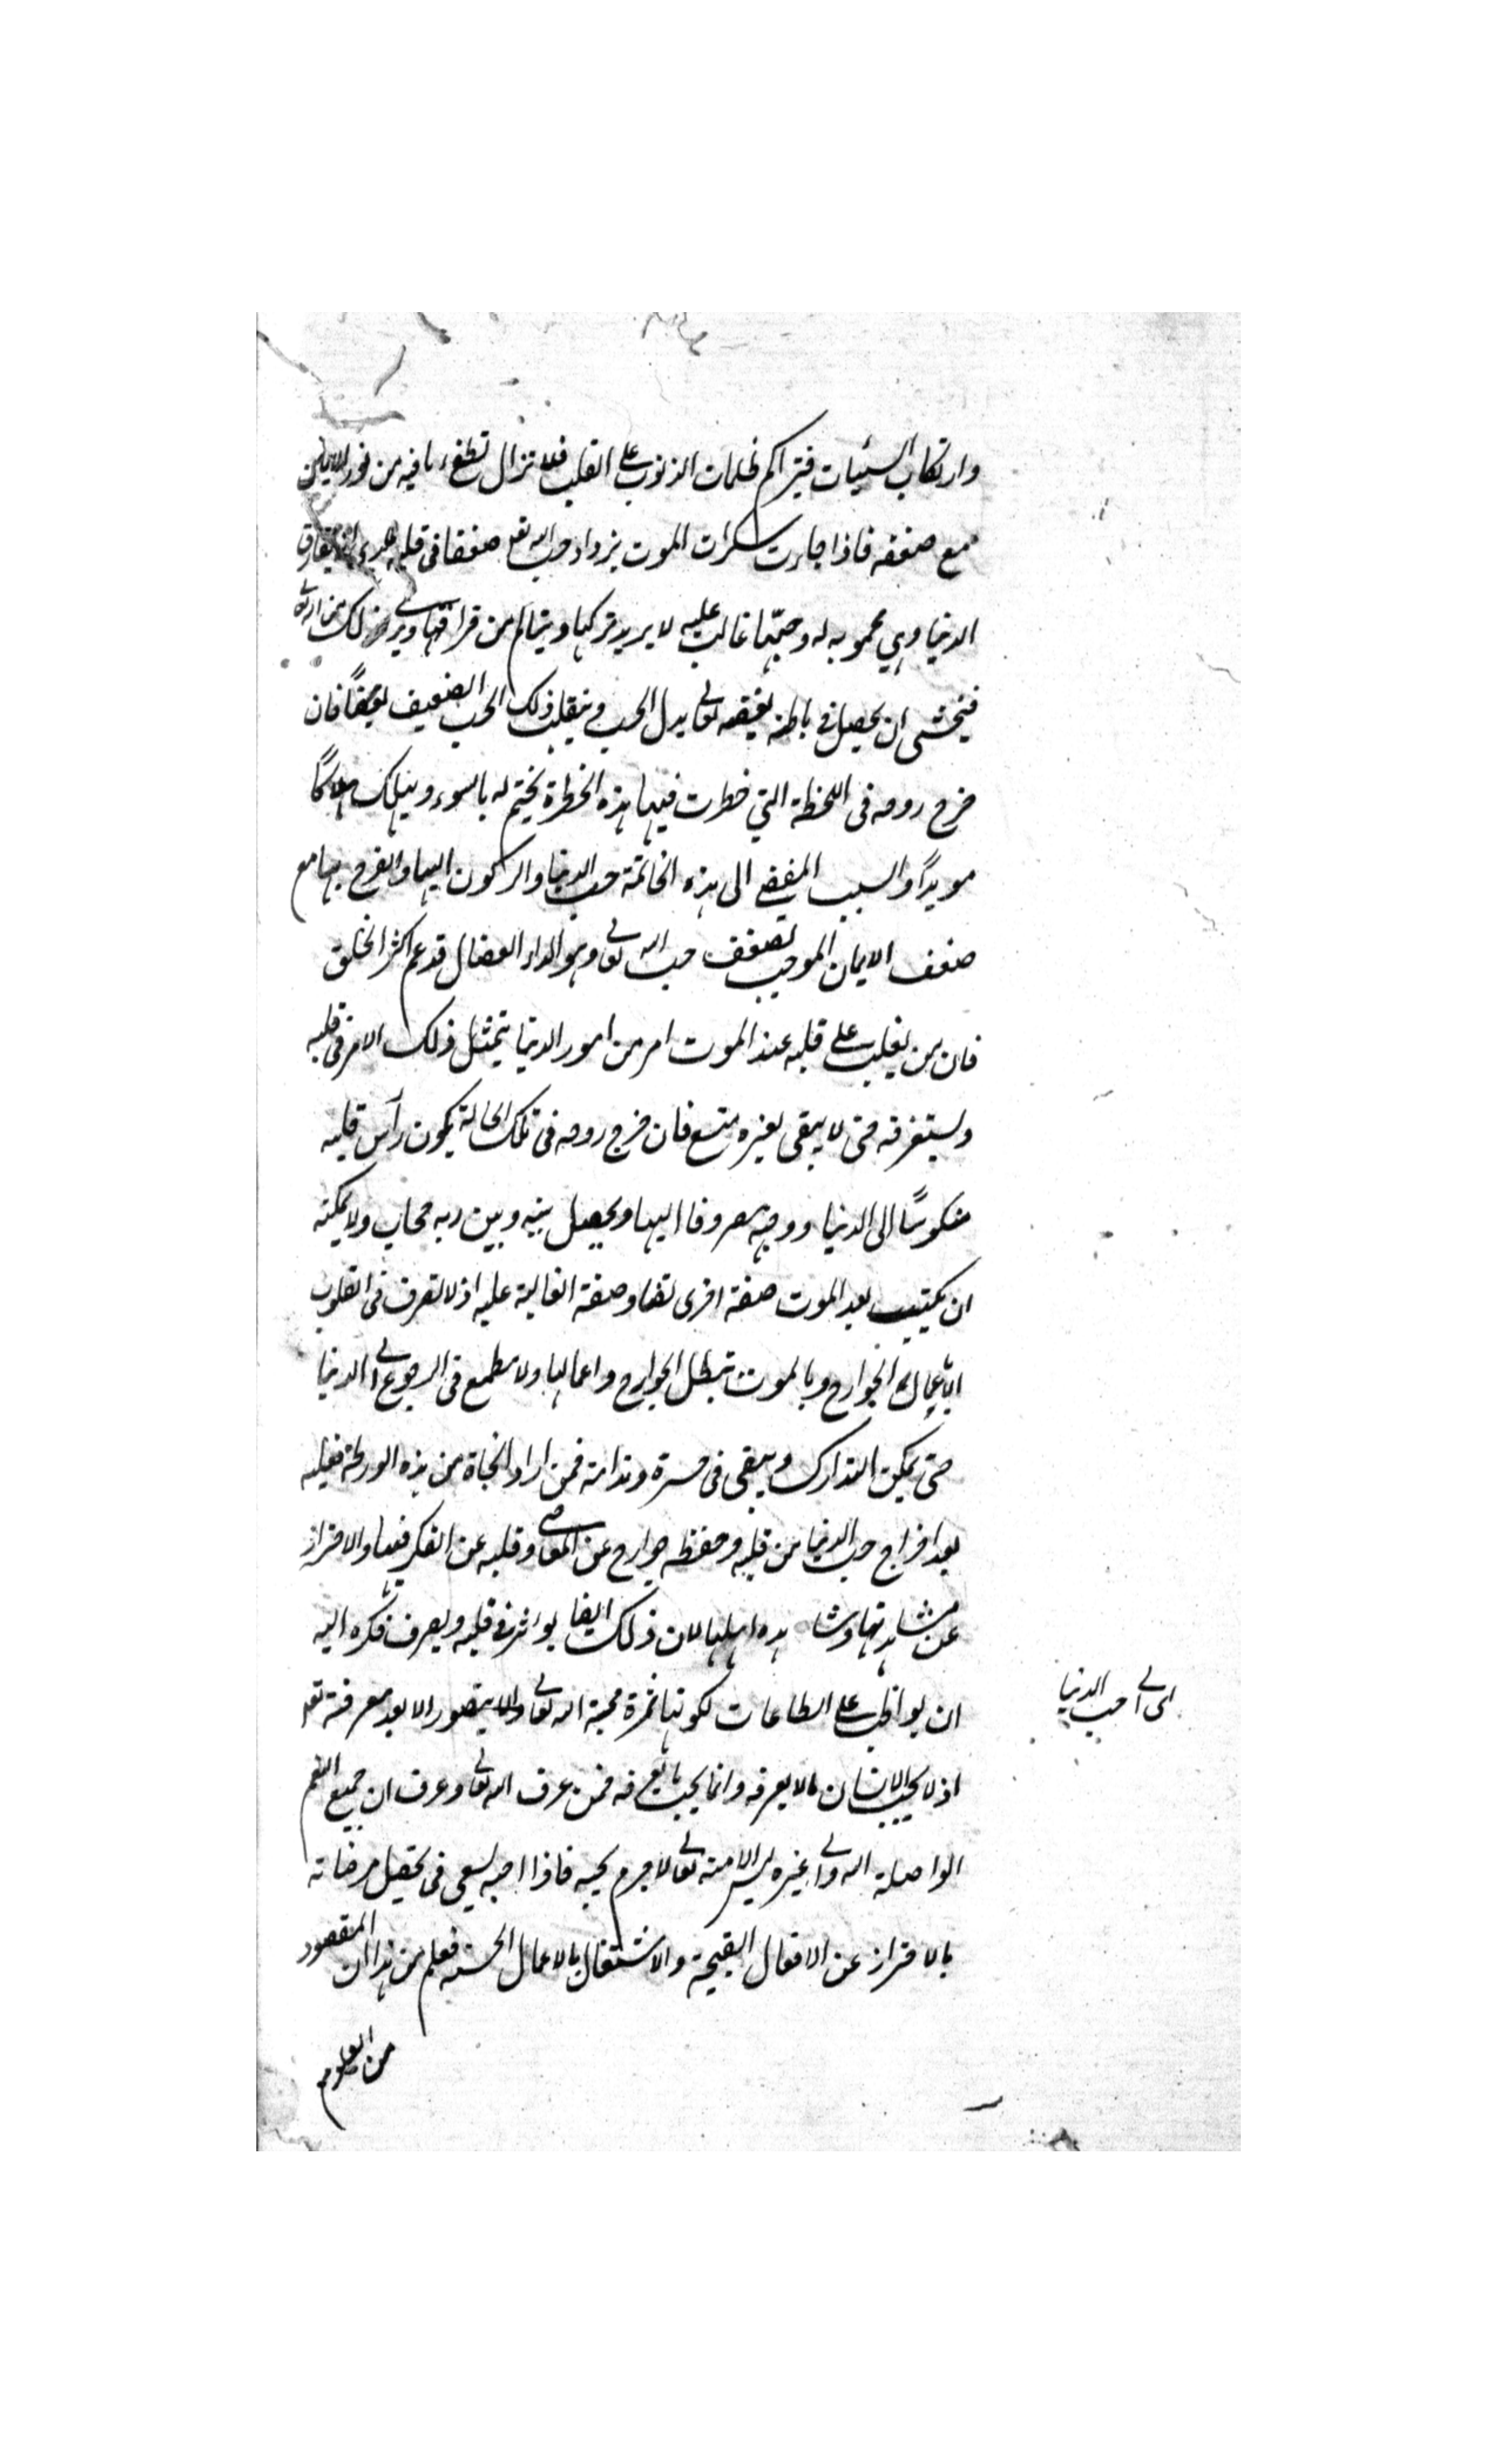 وارتكاب السيئات فيتراكم ظلمات الذنوب على القلب فلا تزال تطفئ ما فيه من نور الايمان
مع ضعفه فاذا جاءت سكرات الموت يزداد حب الله تعا ضعفا في قلبه يرى انه يفارق
الدنيا وهي محبوبه له وحبّها غالب عليه لا يريد تركها ويتالم من فراقها ويرى ذلك من الله تعالى
فيخشى ان يحصل في باطنه بغضه تعالى بدل الحب وينقلب ذلك الحب الضعيف بغضًا فان
خرج روحه في اللحظة التي خطرت فيها هذه الخطرة يختم له بالسوء ويهلك هلاكًا
موبدًا والسبب المفضي الى هذه الخاتمة حب الدنيا والركون اليها والفرح بها مع
ضعف الايمان الموجب لضعف حب الله تعالى وهو الداء العضال قد عم اكثر الخلق
فان من يغلب على قلبه عند الموت امر من امور الدنيا يتمثل ذلك الامر في قلبه
ويستغرقه حتى لا يبقى لغيره متسع فان خرج روحه في تلك الحالة يكون رأس قلبه
منكوسًا الى الدنيا ووجهه مصروفا اليها ويحصل بينه وبين ربه حجاب ولا يمكنه
ان يكتسب بعد الموت صفة اخرى تضاد صفة الغالبة عليه اذ لا تصرف في القلوب
الا باعمال الجوارح وبالموت تبطل الجوارح واعمالها ولا مطمع في الرجوع الى الدنيا
حتى يمكن التدارك ويبقى في حسرة وندامة فمن اراد النجاة من هذه الورطة فعليه
بعد اخراج حب الدنيا من قلبه وحفظه جوارح عن المعاصي وقلبه عن الفكر فيها والاحتراز
عن مشاهدتها ومشاهدة اهلها لان ذلك ايضا يؤثر في قلبه ويصرف فكره اليه
ان يواظب على الطاعات لكونها ثمرة محبة الله تعالى ولا يتصور الا بعد معرفته تعا
اى الى حب الدنيا
اذ لا يحب الانسان ما لا يعرفه وانما يحب ما يعرفه فمن عرف الله تعالى وعرف ان جميع النعم
الواصلة اليه والى غيره ليس الا منه تعالى لا جرم يحبه فاذا احبه يسعى في تحصيل مرضاته
بالاحتراز عن الافعال القبيحة والاشتغال بالاعمال الحسنة فعلم من هذا ان المقصود
من العلوم